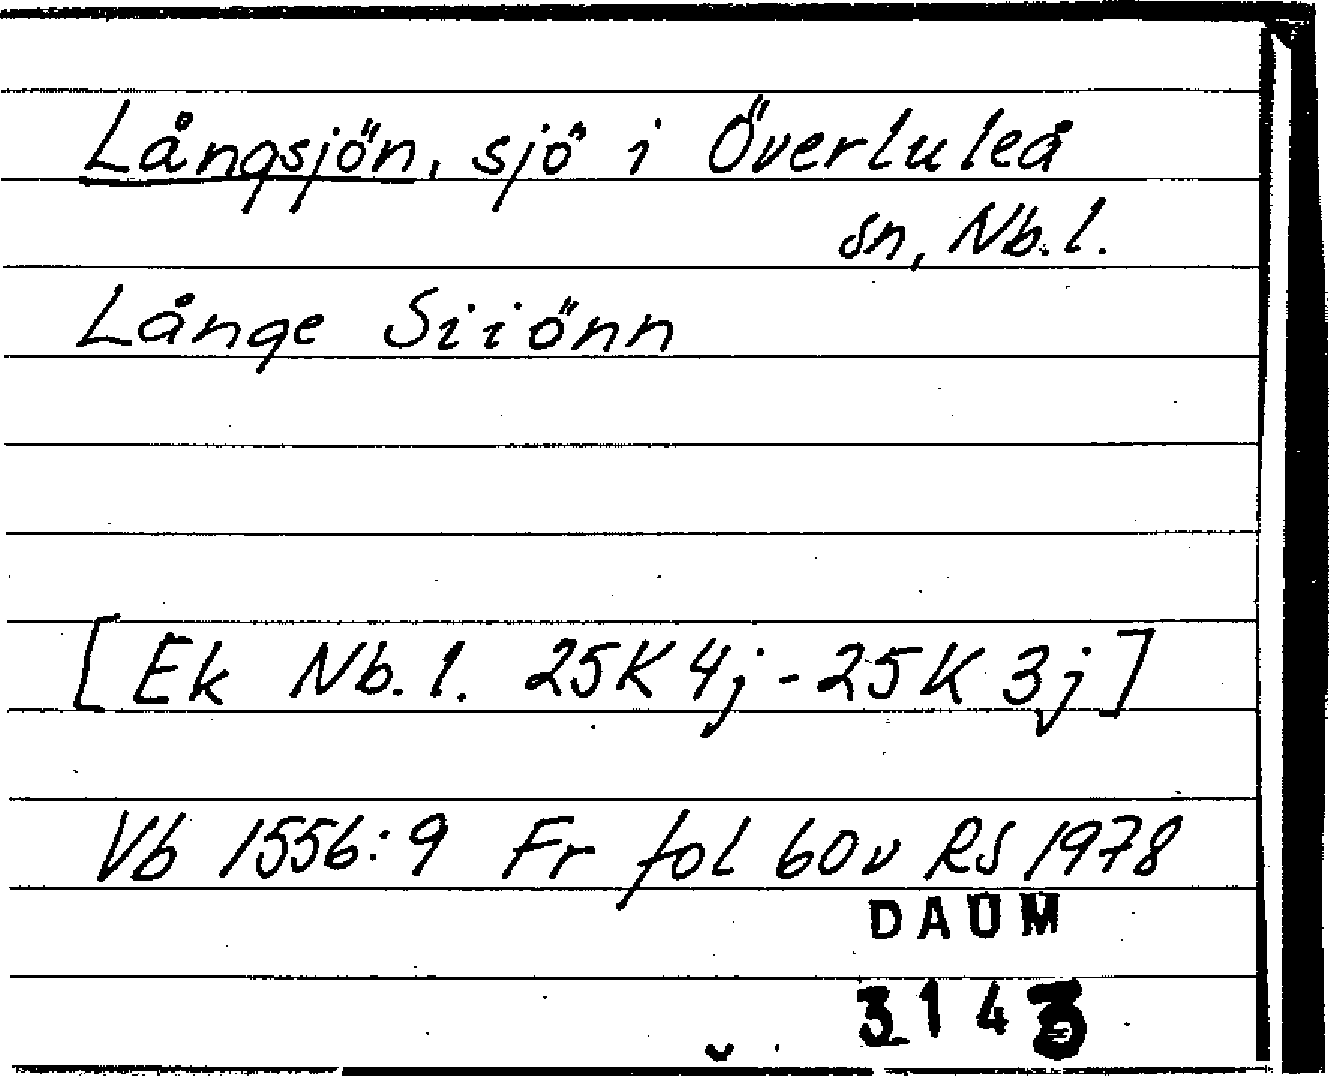 Långsjön, sjö i Överluleå
sn, Nb.l.
Långe Siiönn
[Ek Nb.l. 25K4j-25K3j]
Vb 1556:9 Fr fol 60v RS 1978
DAUM
3143